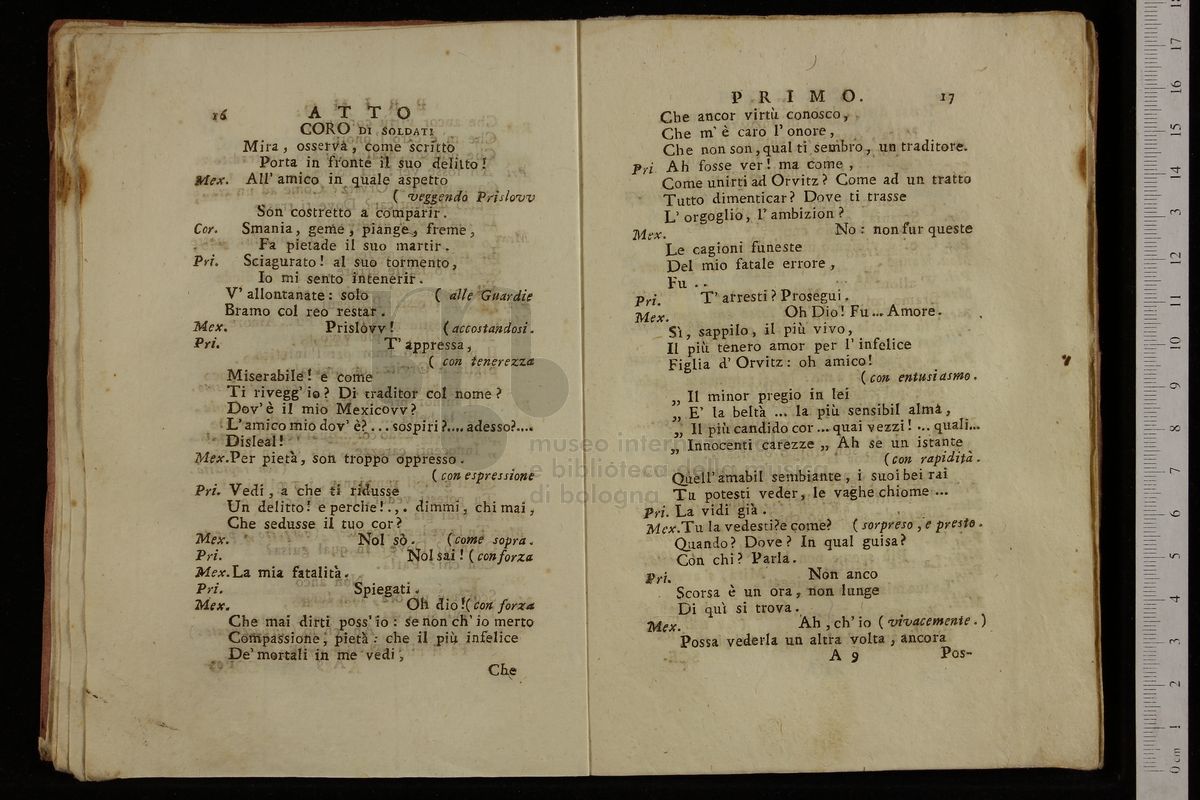 16 ATTO
CORO DI SOLDATI
Mira, osserva, come scritto
Porta in fronte il suo delitto!
Mex. All' amico in quale aspetto
( veggendo Prislovv
Son costretto a comparir.
Cor. Smania, geme, piange, freme,
Fa pietade il suo martir.
Pri. Sciagurato! al suo tormento,
Io mi sento intenerir.
V' allontanate: solo ( alle Guardie
Bramo col reo restar.
Mex. Prislovv! (accostandosi.
Pri. T' appressa,
( con tenerezza
Miserabile! e come
Ti rivegg' io? Di traditor col nome?
Dov' è il mio Mexicovv?
L' amico mio dov' è?... sospiri?.... adesso?....
Disleal!
Mex. Per pietà, son troppo oppresso.
(con espressione
Pri. Vedi, a che ti ridusse
Un delitto! e perche!... dimmi, chi mai,
Che sedusse il tuo cor?
Mex. Nol sò. (come sopra.
Pri. Nol sai! (con forza
Mex. La mia fatalità.
Pri. Spiegati.
Mex. Oh dio! (con forza
Che mai dirti poss' io: se non ch' io merto
Compassione, pietà: che il più infelice
De' mortali in me vedi,
Che
PRIMO. 17
Che ancor virtù conosco,
Che m' è caro l' onore,
Che non son, qual ti sembro, un traditore.
Pri Ah fosse ver! ma come,
Come unirti ad Orvitz? Come ad un tratto
Tutto dimenticar? Dove ti trasse
L' orgoglio, l' ambizion?
Mex. No: non fur queste
Le cagioni funeste
Del mio fatale errore,
Fu ..
Pri. T' arresti? Prosegui.
Mex. Oh Dio! Fu... Amore.
Sì, sappilo, il più vivo,
Il più tenero amor per l' infelice
Figlia d' Orvitz: oh amico!
(con entusiasmo.
„ Il minor pregio in lei
„ E' la beltà ... la più sensibil alma,
„ Il più candido cor ... quai vezzi! ... quali...
„ Innocenti carezze „ Ah se un istante
(con rapidità.
Quell' amabil sembiante, i suoi bei rai
Tu potesti veder, le vaghe chiome ...
Pri. La vidi già.
Mex. Tu la vedesti? e come? (sorpreso, e presto.
Quando? Dove? In qual guisa?
Con chi? Parla.
Pri. Non anco
Scorsa è un ora, non lunge
Di quì si trova.
Mex. Ah, ch' io (vivacemente.)
Possa vederla un altra volta, ancora
A 9 Pos-
museo inter
e biblioteca della musica
di bologna
0 cm 1 2 3 4 5 6 7 8 9 10 11 12 13 14 15 16 17